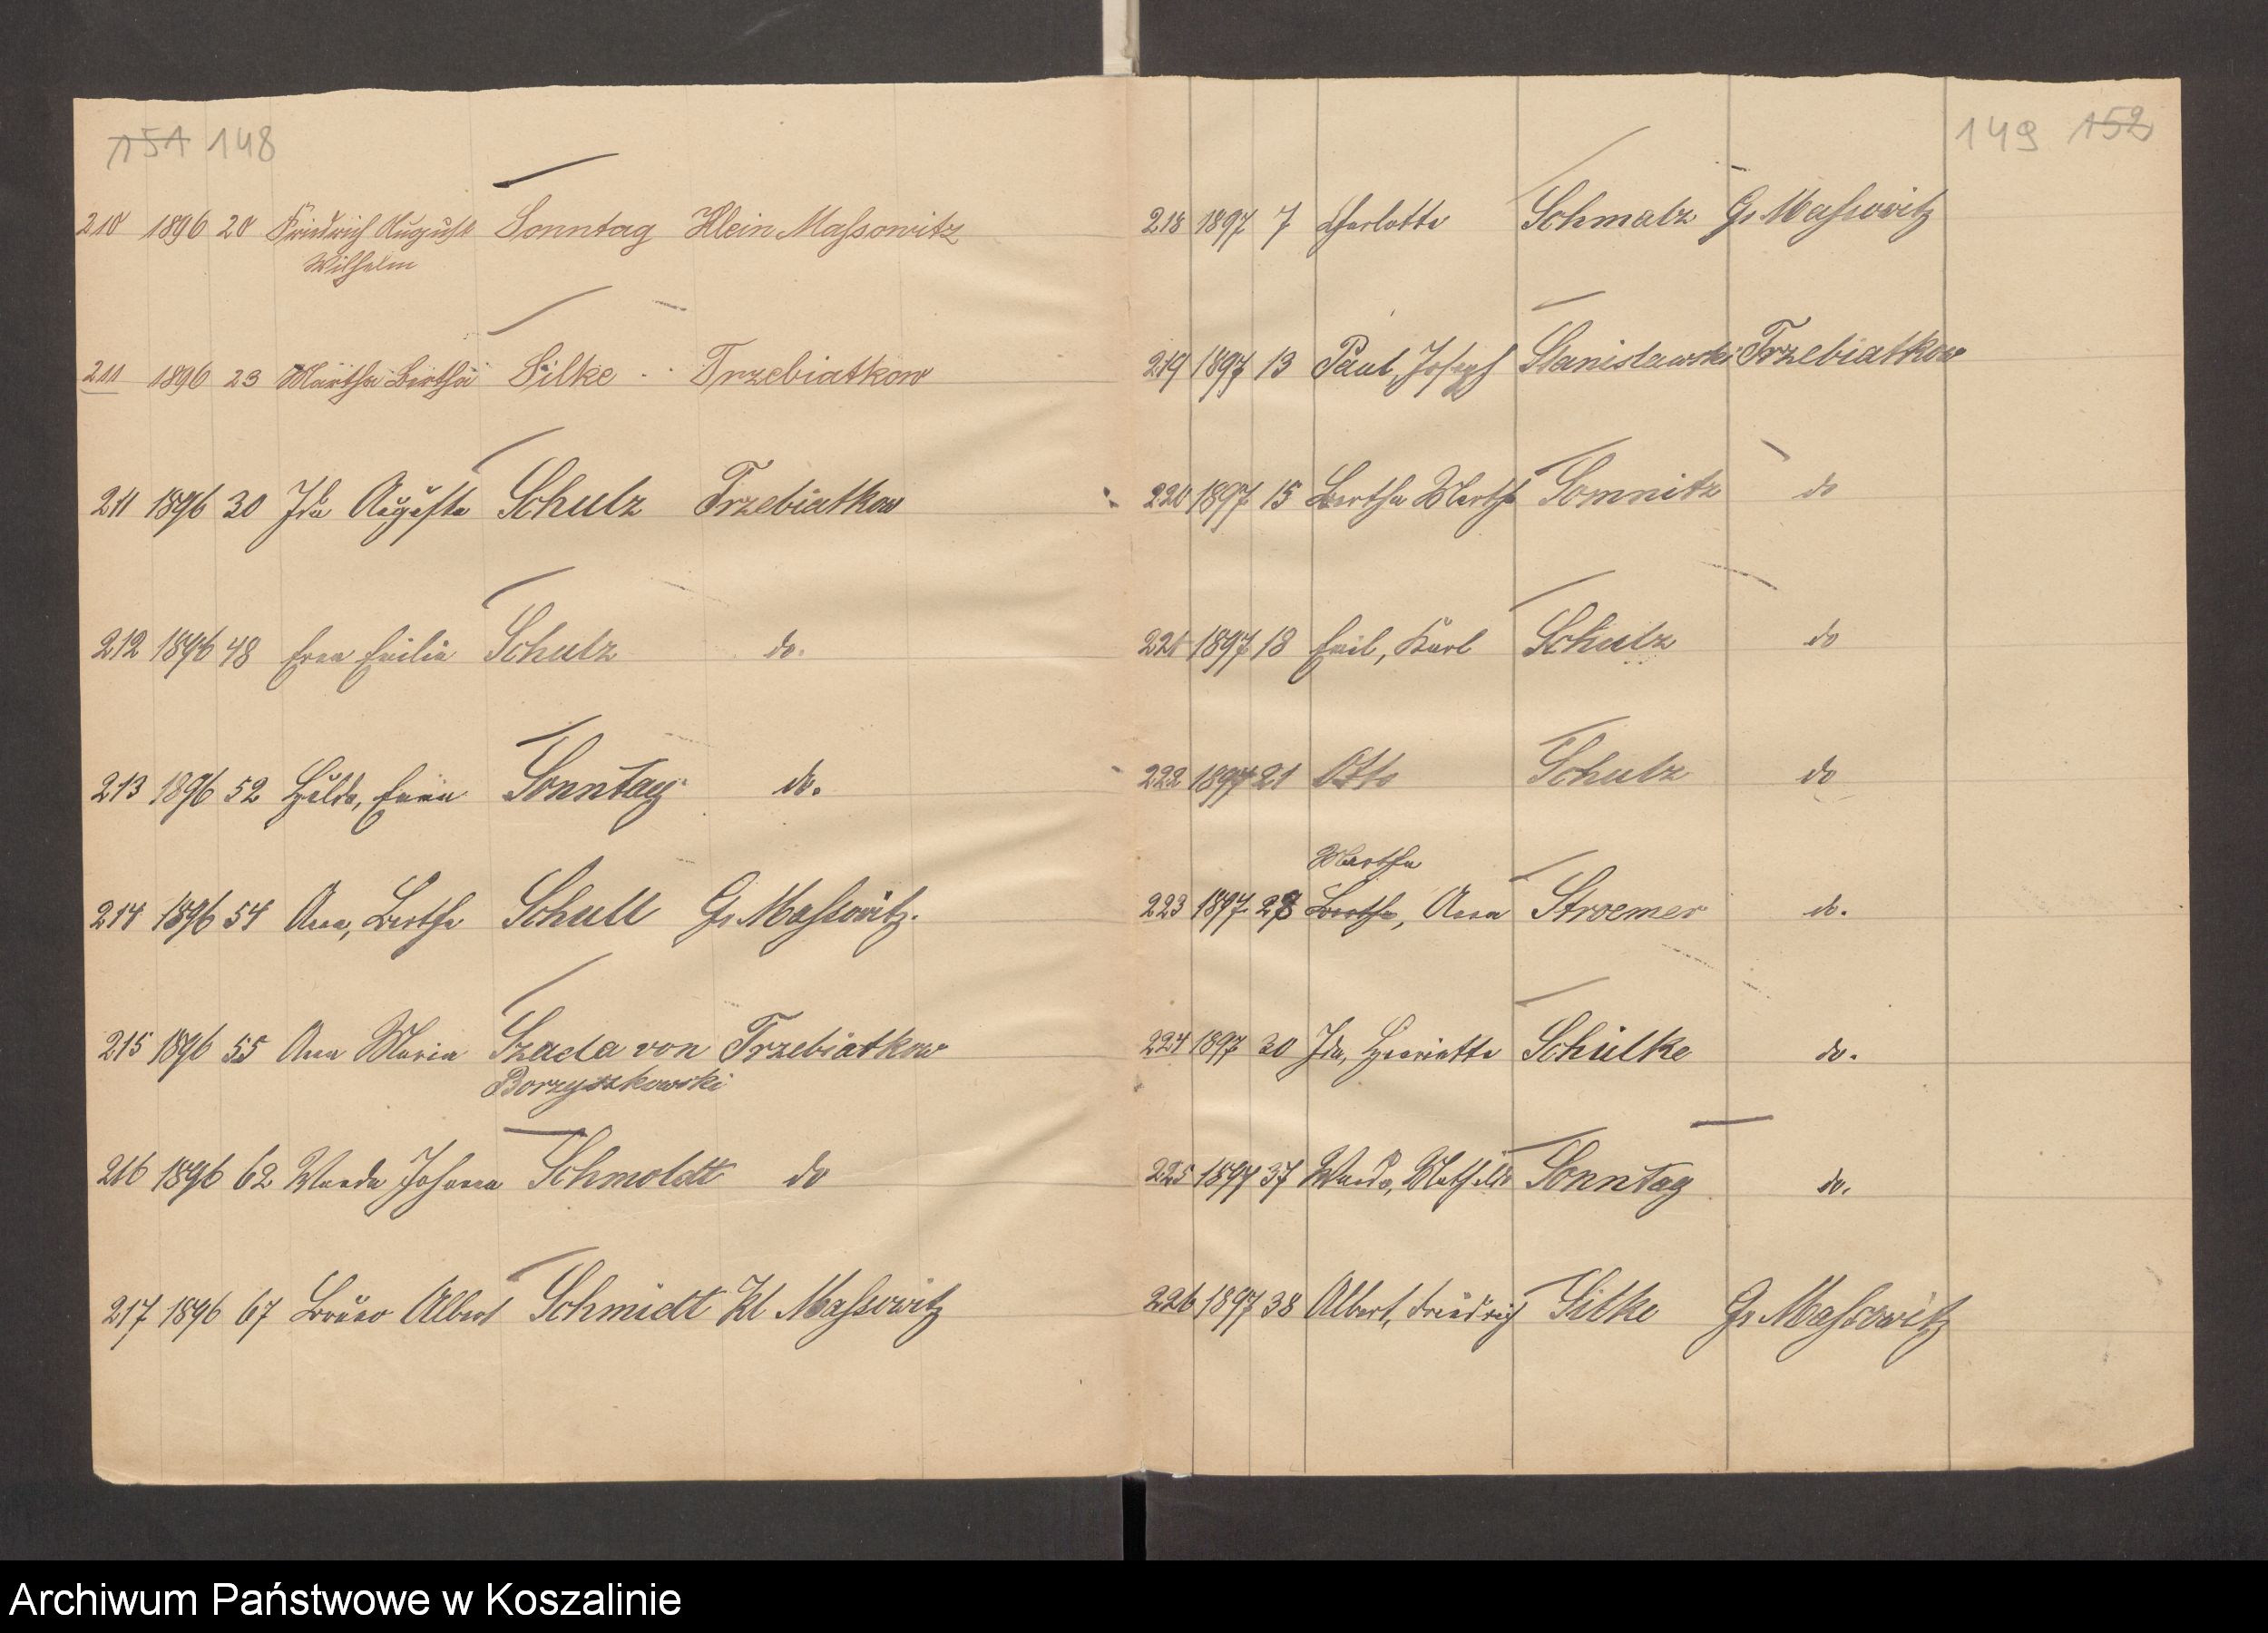 151 148
210 1896 20 Friedrich August Sonntag Klein Massowitz
Wilhelm
211 1896 23 Martha Bertha Silke Trzebiatkow
211 1896 30 Ida Auguste Schulz Trzebiatkow
212 1896 48 Erna Emilie Schulz do.
213 1896 52 Hulda, Emma Sonntag do.
214 1896 54 Anna, Bertha Schull Gr Massowitz.
215 1896 55 Anna Maria Szada von Trzebiatkow
Borzyszkowski
216 1896 62 Wanda Johanna Schmoldt do
217 1896 67 Bruno Albert Schmidt Kl Massowitz
149 152
218 1897 7 Charlotte Schmalz Gr Massowitz
219 1897 13 Paul, Joseph Stanislawski Trzebiatkow
220 1897 15 Bertha Martha Somnitz do
221 1897 18 Emil, Karl Schulz do
222 1897 21 Otto Schulz do
Martha
223 1897 28 Bertha, Anna Stroemer do.
224 1897 30 Ida, Henriette Schülke do.
225 1897 37 Wanda, Mathilde Sonntag do.
226 1897 38 Albert, Friedrich Silke Gr Massowitz
Archiwum Państwowe w Koszalinie